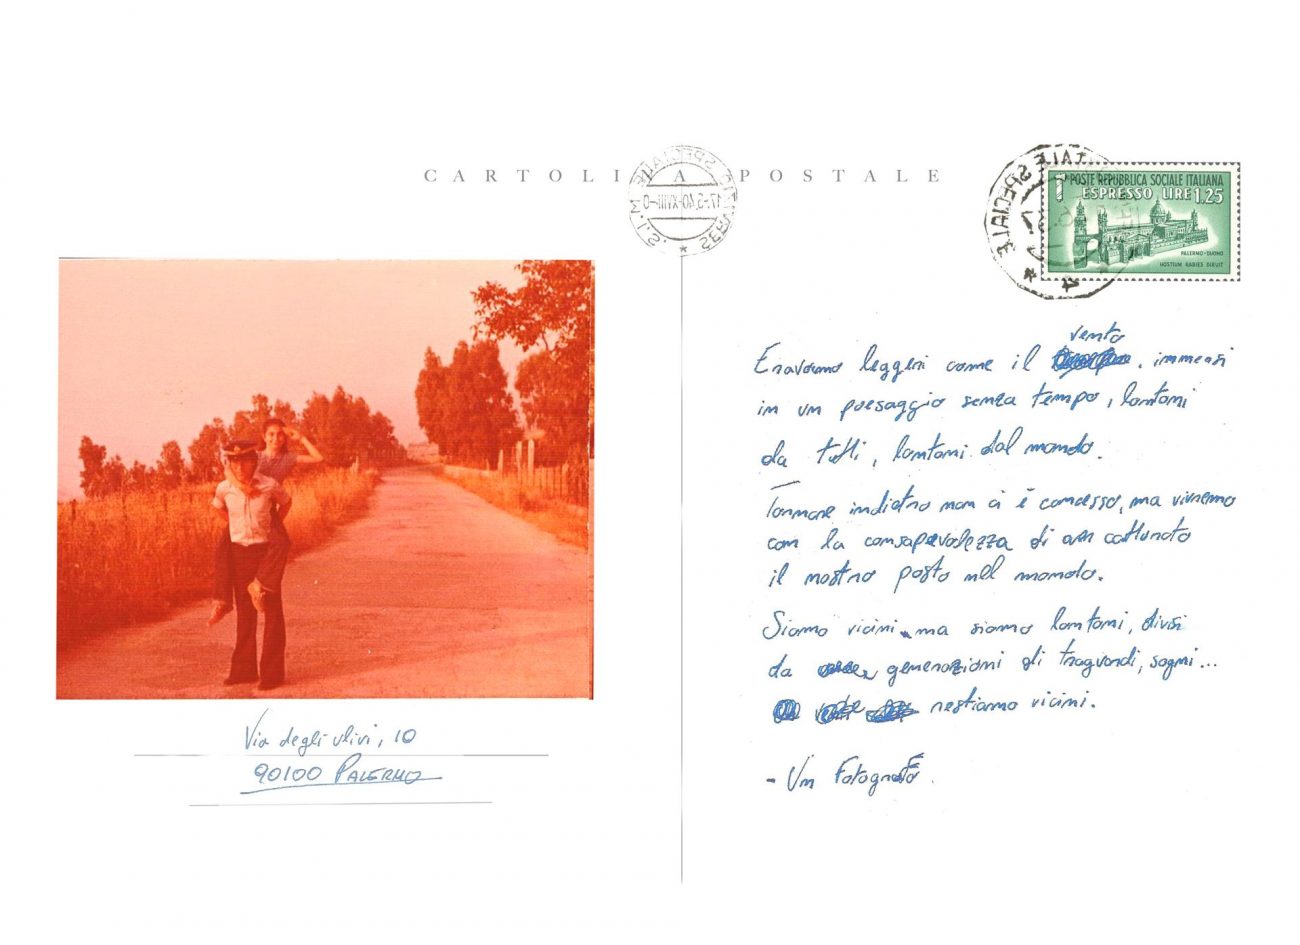 CARTOLINA POSTALE
POSTE REPUBBLICA SOCIALE ITALIANA
ESPRESSO LIRE 1.25
PALERMO - DUOMO
HOSTIUM RABIES DIRUIT
17-5.40-XVIII-0
Eravamo leggeri come il vento, immersi
in un paesaggio senza tempo, lontani
da tutti, lontani dal mondo.
Tornare indietro non ci è concesso, ma vivremo
con la consapevolezza di aver catturato
il nostro posto nel mondo.
Siamo vicini, ma siamo lontani, divisi
da generazioni di traguardi, sogni...
restiamo vicini.
- Un Fotografo.
Via degli ulivi, 10
90100 PALERMO